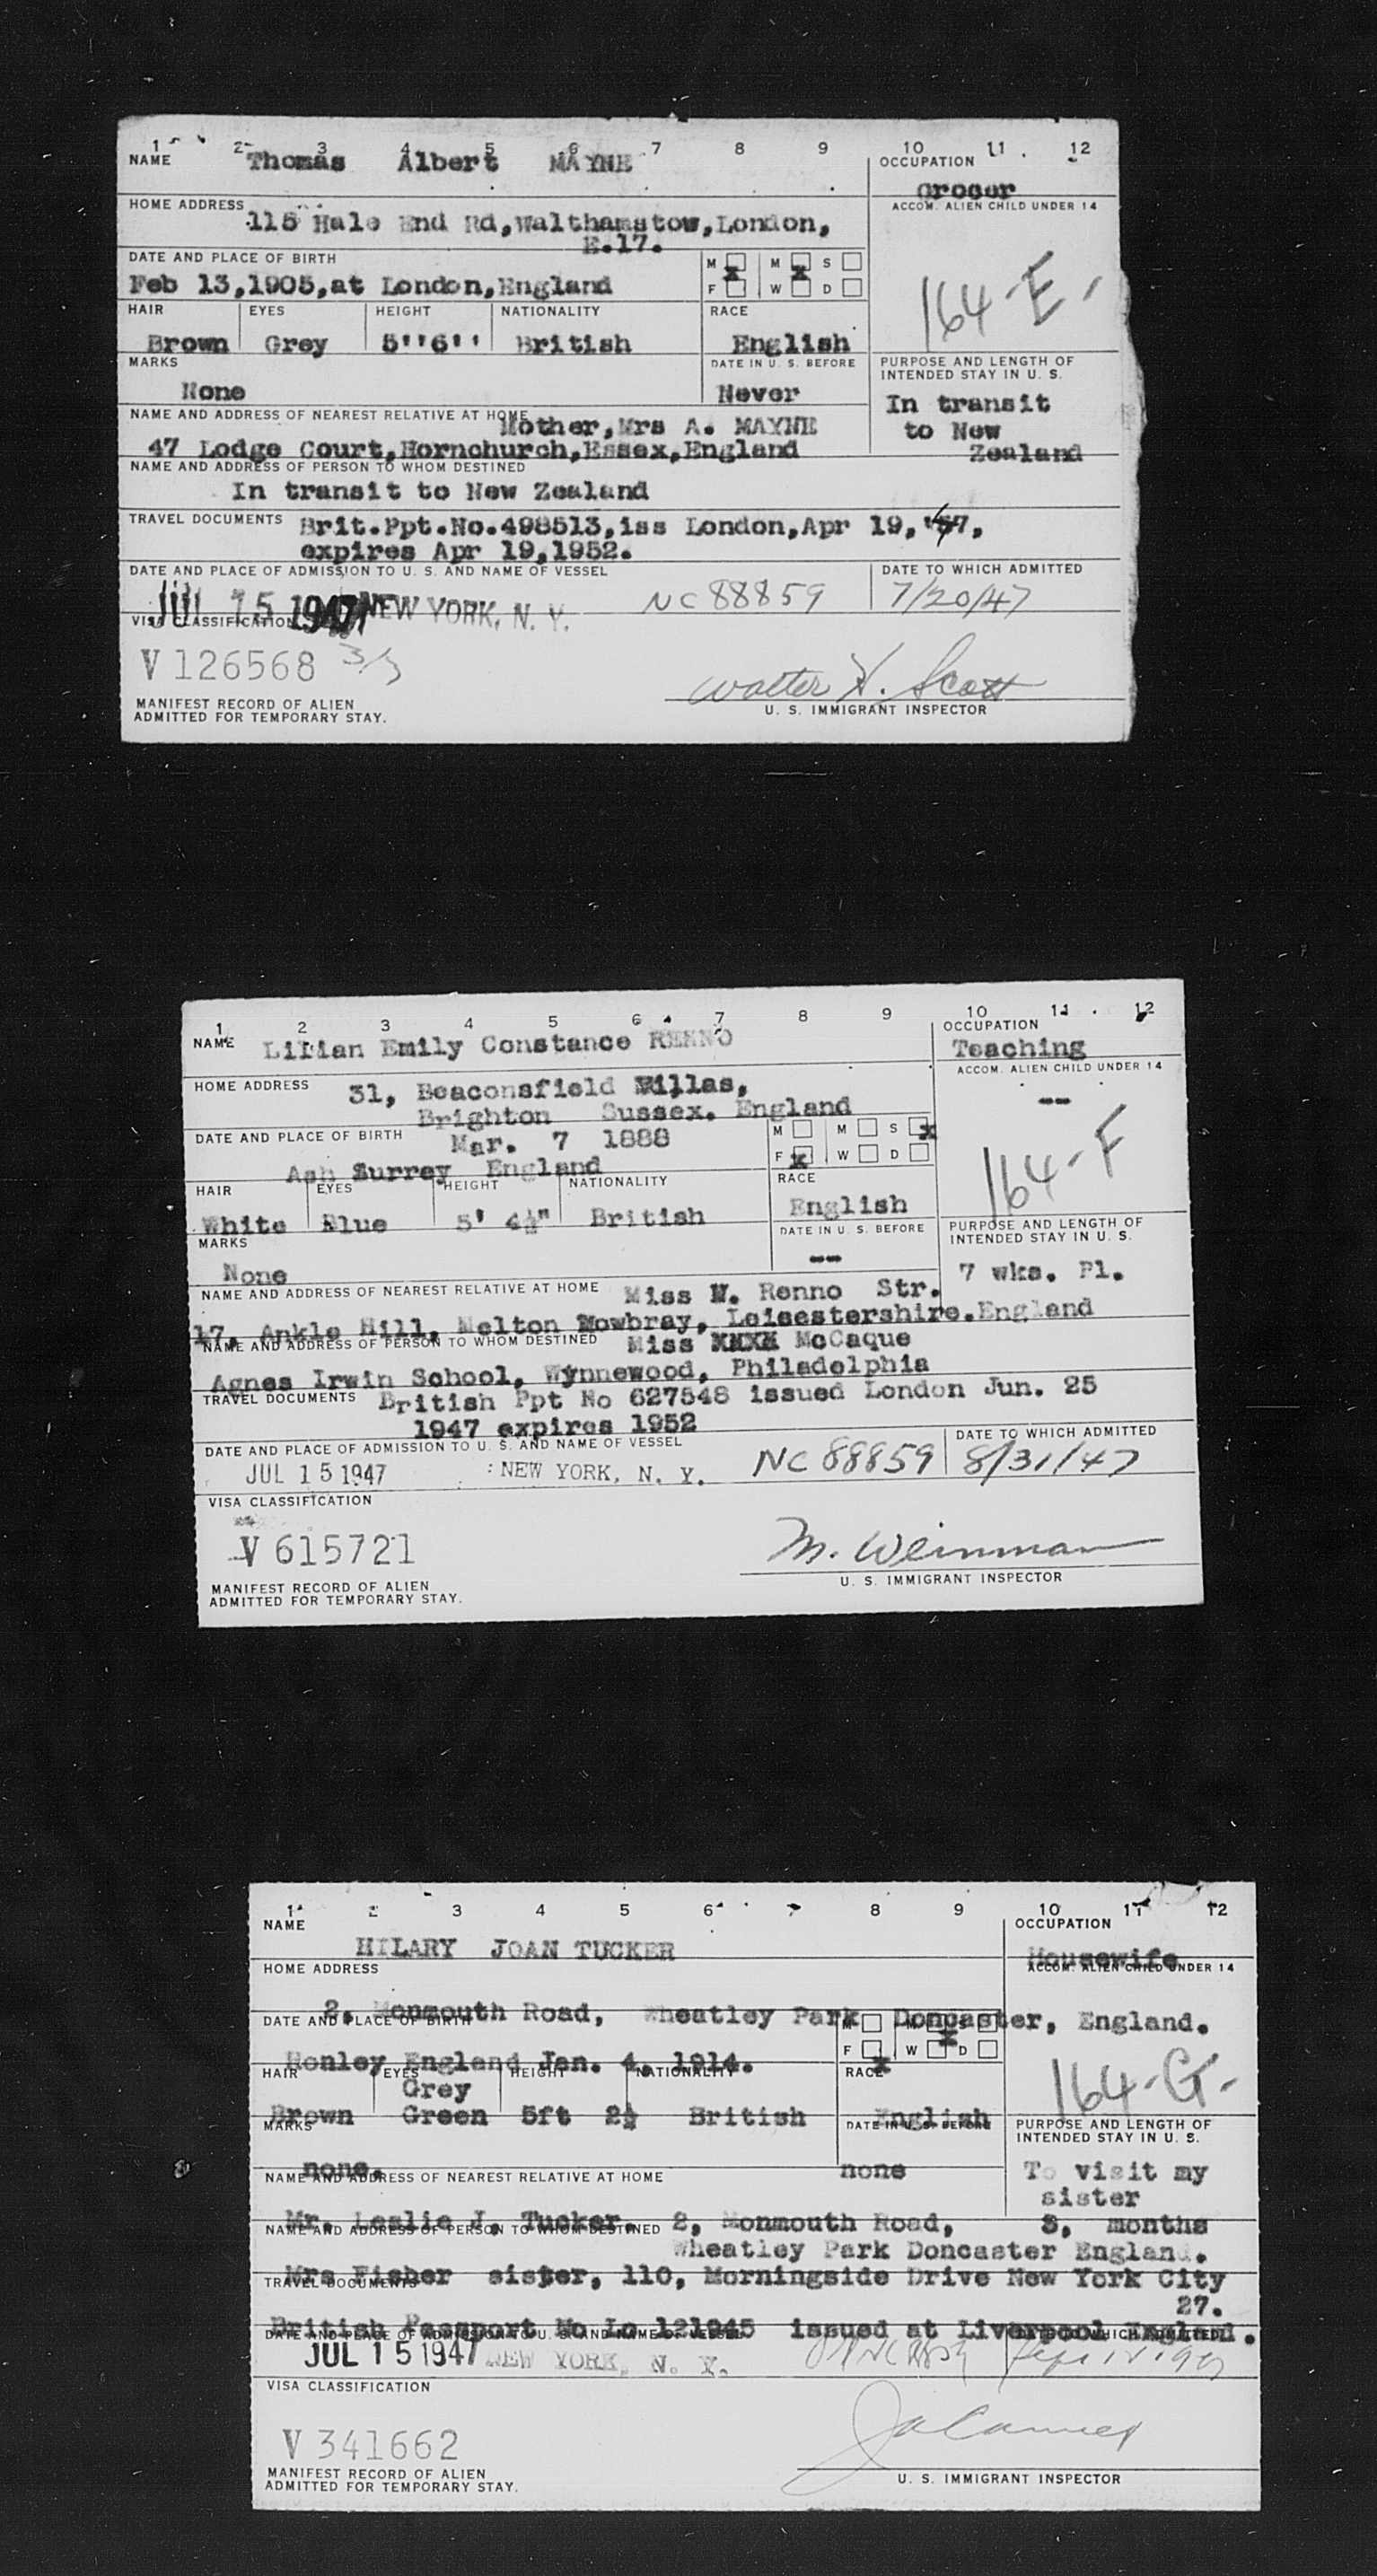 1 2 3 4 5 6 7 8 9 10 11 12
NAME Thomas Albert MAYNE OCCUPATION
Grocer
HOME ADDRESS ACCOM. ALIEN CHILD UNDER 14
115 Hale End Rd,Walthamstow,London,
E.17.
DATE AND PLACE OF BIRTH M M S
Feb 13,1905,at London,England F x W x D
164-E-
HAIR EYES HEIGHT NATIONALITY RACE
Brown Grey 5''6'' British English
MARKS DATE IN U. S. BEFORE PURPOSE AND LENGTH OF
INTENDED STAY IN U. S.
None Never In transit
NAME AND ADDRESS OF NEAREST RELATIVE AT HOME Mother,Mrs A. MAYNE to New
47 Lodge Court,Hornchurch,Essex,England Zealand
NAME AND ADDRESS OF PERSON TO WHOM DESTINED
In transit to New Zealand
TRAVEL DOCUMENTS Brit.Ppt.No.498513,iss London,Apr 19,'47,
expires Apr 19,1952.
DATE AND PLACE OF ADMISSION TO U. S. AND NAME OF VESSEL DATE TO WHICH ADMITTED
JUL 15 1947 NEW YORK, N. Y. NC 88859 7/20/47
VISA CLASSIFICATION
V 126568 3/3
MANIFEST RECORD OF ALIEN
ADMITTED FOR TEMPORARY STAY.
Walter H. Scott
U. S. IMMIGRANT INSPECTOR
1 2 3 4 5 6 7 8 9 10 11 12
NAME Lilian Emily Constance RENNO OCCUPATION
Teaching
HOME ADDRESS 31, Beaconsfield Villas, ACCOM. ALIEN CHILD UNDER 14
Brighton Sussex. England --
DATE AND PLACE OF BIRTH Mar. 7 1888 M M S x
Ash Surrey England F x W D
164-F
HAIR EYES HEIGHT NATIONALITY RACE
White Blue 5' 4½" British English
MARKS DATE IN U. S. BEFORE PURPOSE AND LENGTH OF
INTENDED STAY IN U. S.
None -- 7 wks. Pl.
NAME AND ADDRESS OF NEAREST RELATIVE AT HOME Miss W. Renno Str.
17, Ankle Hill, Melton Mowbray, Leicestershire.England
NAME AND ADDRESS OF PERSON TO WHOM DESTINED Miss XXXX McCaque
Agnes Irwin School, Wynnewood, Philadelphia
TRAVEL DOCUMENTS British Ppt No 627548 issued London Jun. 25
1947 expires 1952
DATE AND PLACE OF ADMISSION TO U. S. AND NAME OF VESSEL DATE TO WHICH ADMITTED
JUL 15 1947 NEW YORK, N. Y. NC 88859 8/31/47
VISA CLASSIFICATION
V 615721
M. Weinman
MANIFEST RECORD OF ALIEN
ADMITTED FOR TEMPORARY STAY.
U. S. IMMIGRANT INSPECTOR
1 2 3 4 5 6 7 8 9 10 11 12
NAME OCCUPATION
HILARY JOAN TUCKER Housewife
HOME ADDRESS ACCOM. ALIEN CHILD UNDER 14
2, Monmouth Road, Wheatley Park Doncaster, England.
DATE AND PLACE OF BIRTH M M x S
Honley England Jan. 4, 1914. F x W D
164-G-
HAIR EYES HEIGHT NATIONALITY RACE
Grey
Brown Green 5ft 2½ British English
MARKS DATE IN U. S. BEFORE PURPOSE AND LENGTH OF
INTENDED STAY IN U. S.
none. none To visit my
NAME AND ADDRESS OF NEAREST RELATIVE AT HOME sister
Mr. Leslie J. Tucker. 2, Monmouth Road, 3, months
NAME AND ADDRESS OF PERSON TO WHOM DESTINED Wheatley Park Doncaster England.
Mrs Fisher sister, 110, Morningside Drive New York City
TRAVEL DOCUMENTS 27.
British Passport No Lo 121945 issued at Liverpool England.
DATE AND PLACE OF ADMISSION TO U. S. AND NAME OF VESSEL DATE TO WHICH ADMITTED
JUL 15 1947 NEW YORK, N. Y.
VISA CLASSIFICATION
V 341662
MANIFEST RECORD OF ALIEN
ADMITTED FOR TEMPORARY STAY.
U. S. IMMIGRANT INSPECTOR